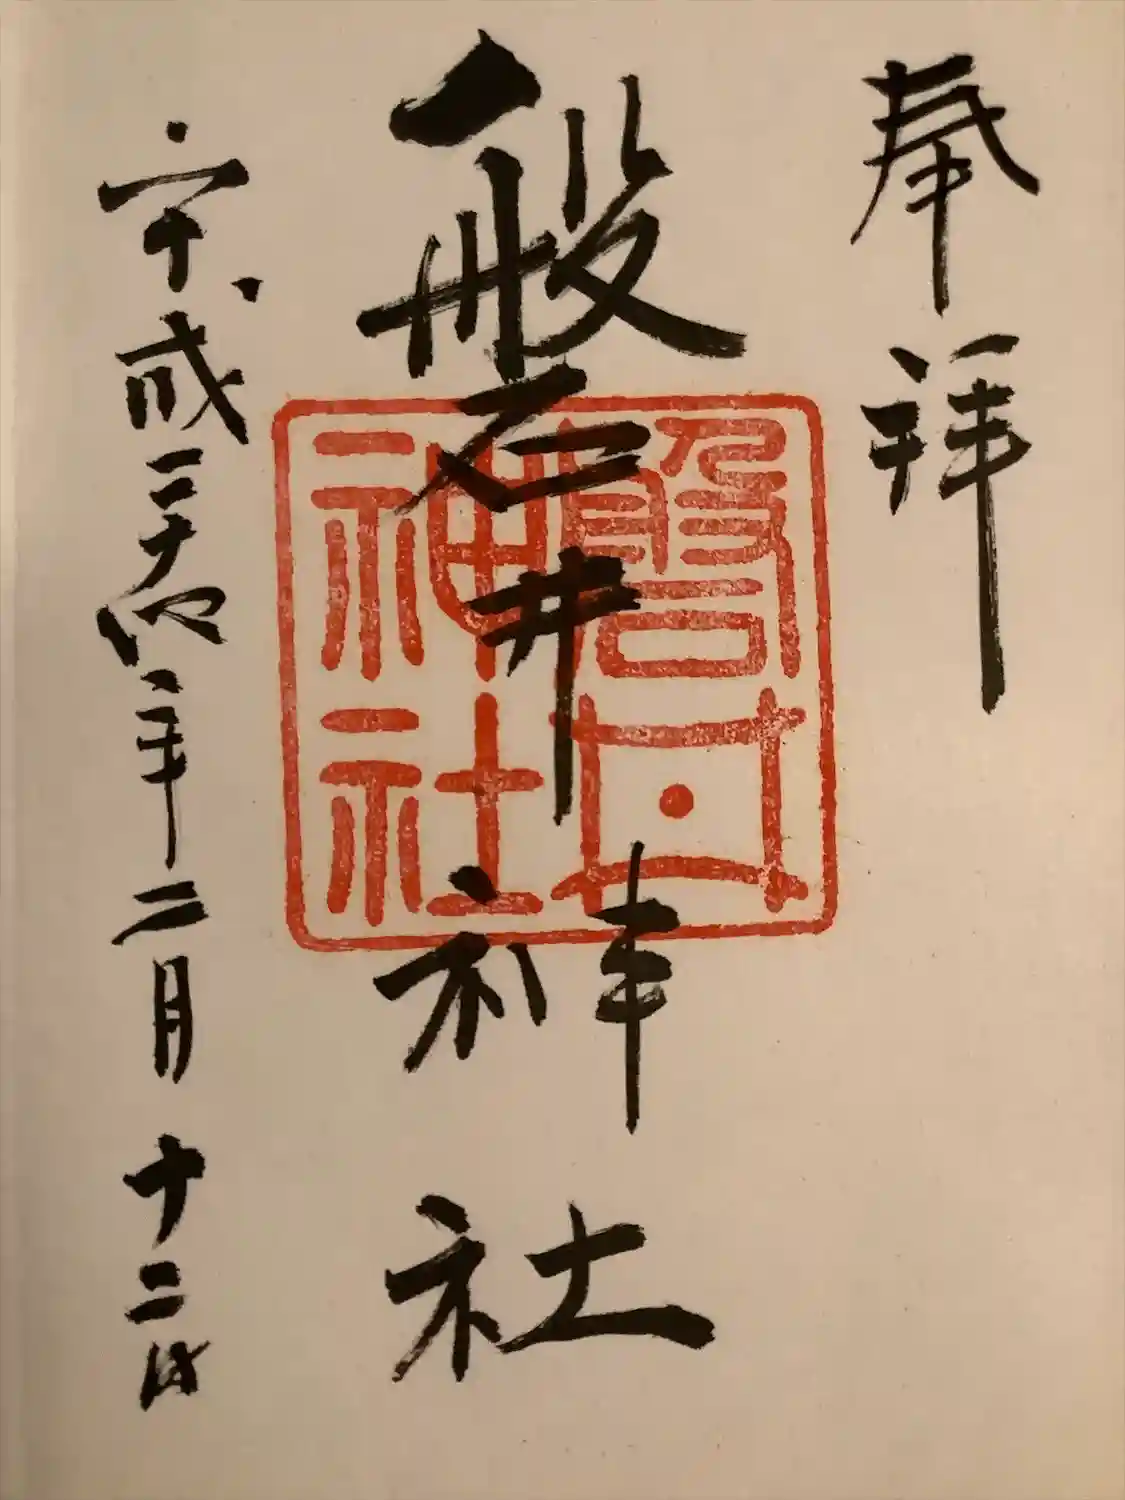 奉拝
磐井神社
磐井神社
平成二十四年二月十二日